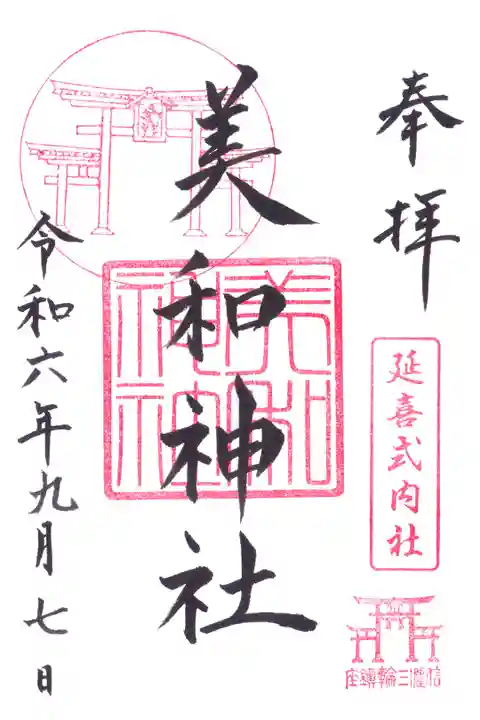 奉拝
延喜式内社
信濃三輪鎮座
美和神社
美和
神社
令和六年九月七日